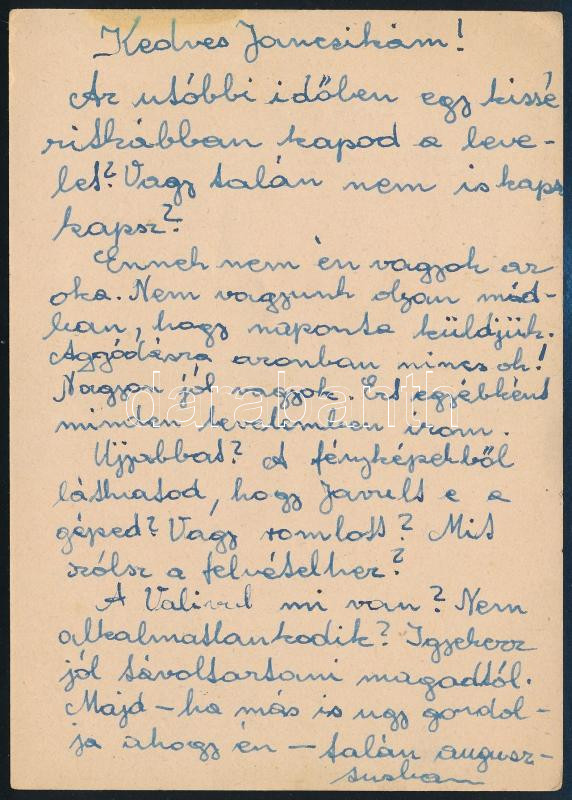 Kedves Jancsikám!
Az utóbbi időben egy kissé
ritkábban kapod a leve-
let? Vagy talán nem is kaps
kapsz?
Ennek nem én vagyok az
oka. Nem vagyunk olyan mód-
ban, hogy naponta küldjük.
Aggódásra azonban nincs ok!
Nagyon jól vagyok. Ezt egyébként
minden levelemben irom.
Ujjabbat? A fényképekből
láthatod, hogy javult e a
géped? Vagy romlott? Mit
szólsz a felvételhez?
A Valival mi van? Nem
alkalmatlankodik? Igyekezz
jól távoltartani magadtól.
Majd – ha más is ugy gondol-
ja ahogy én – talán augusz-
tusban
darabanth